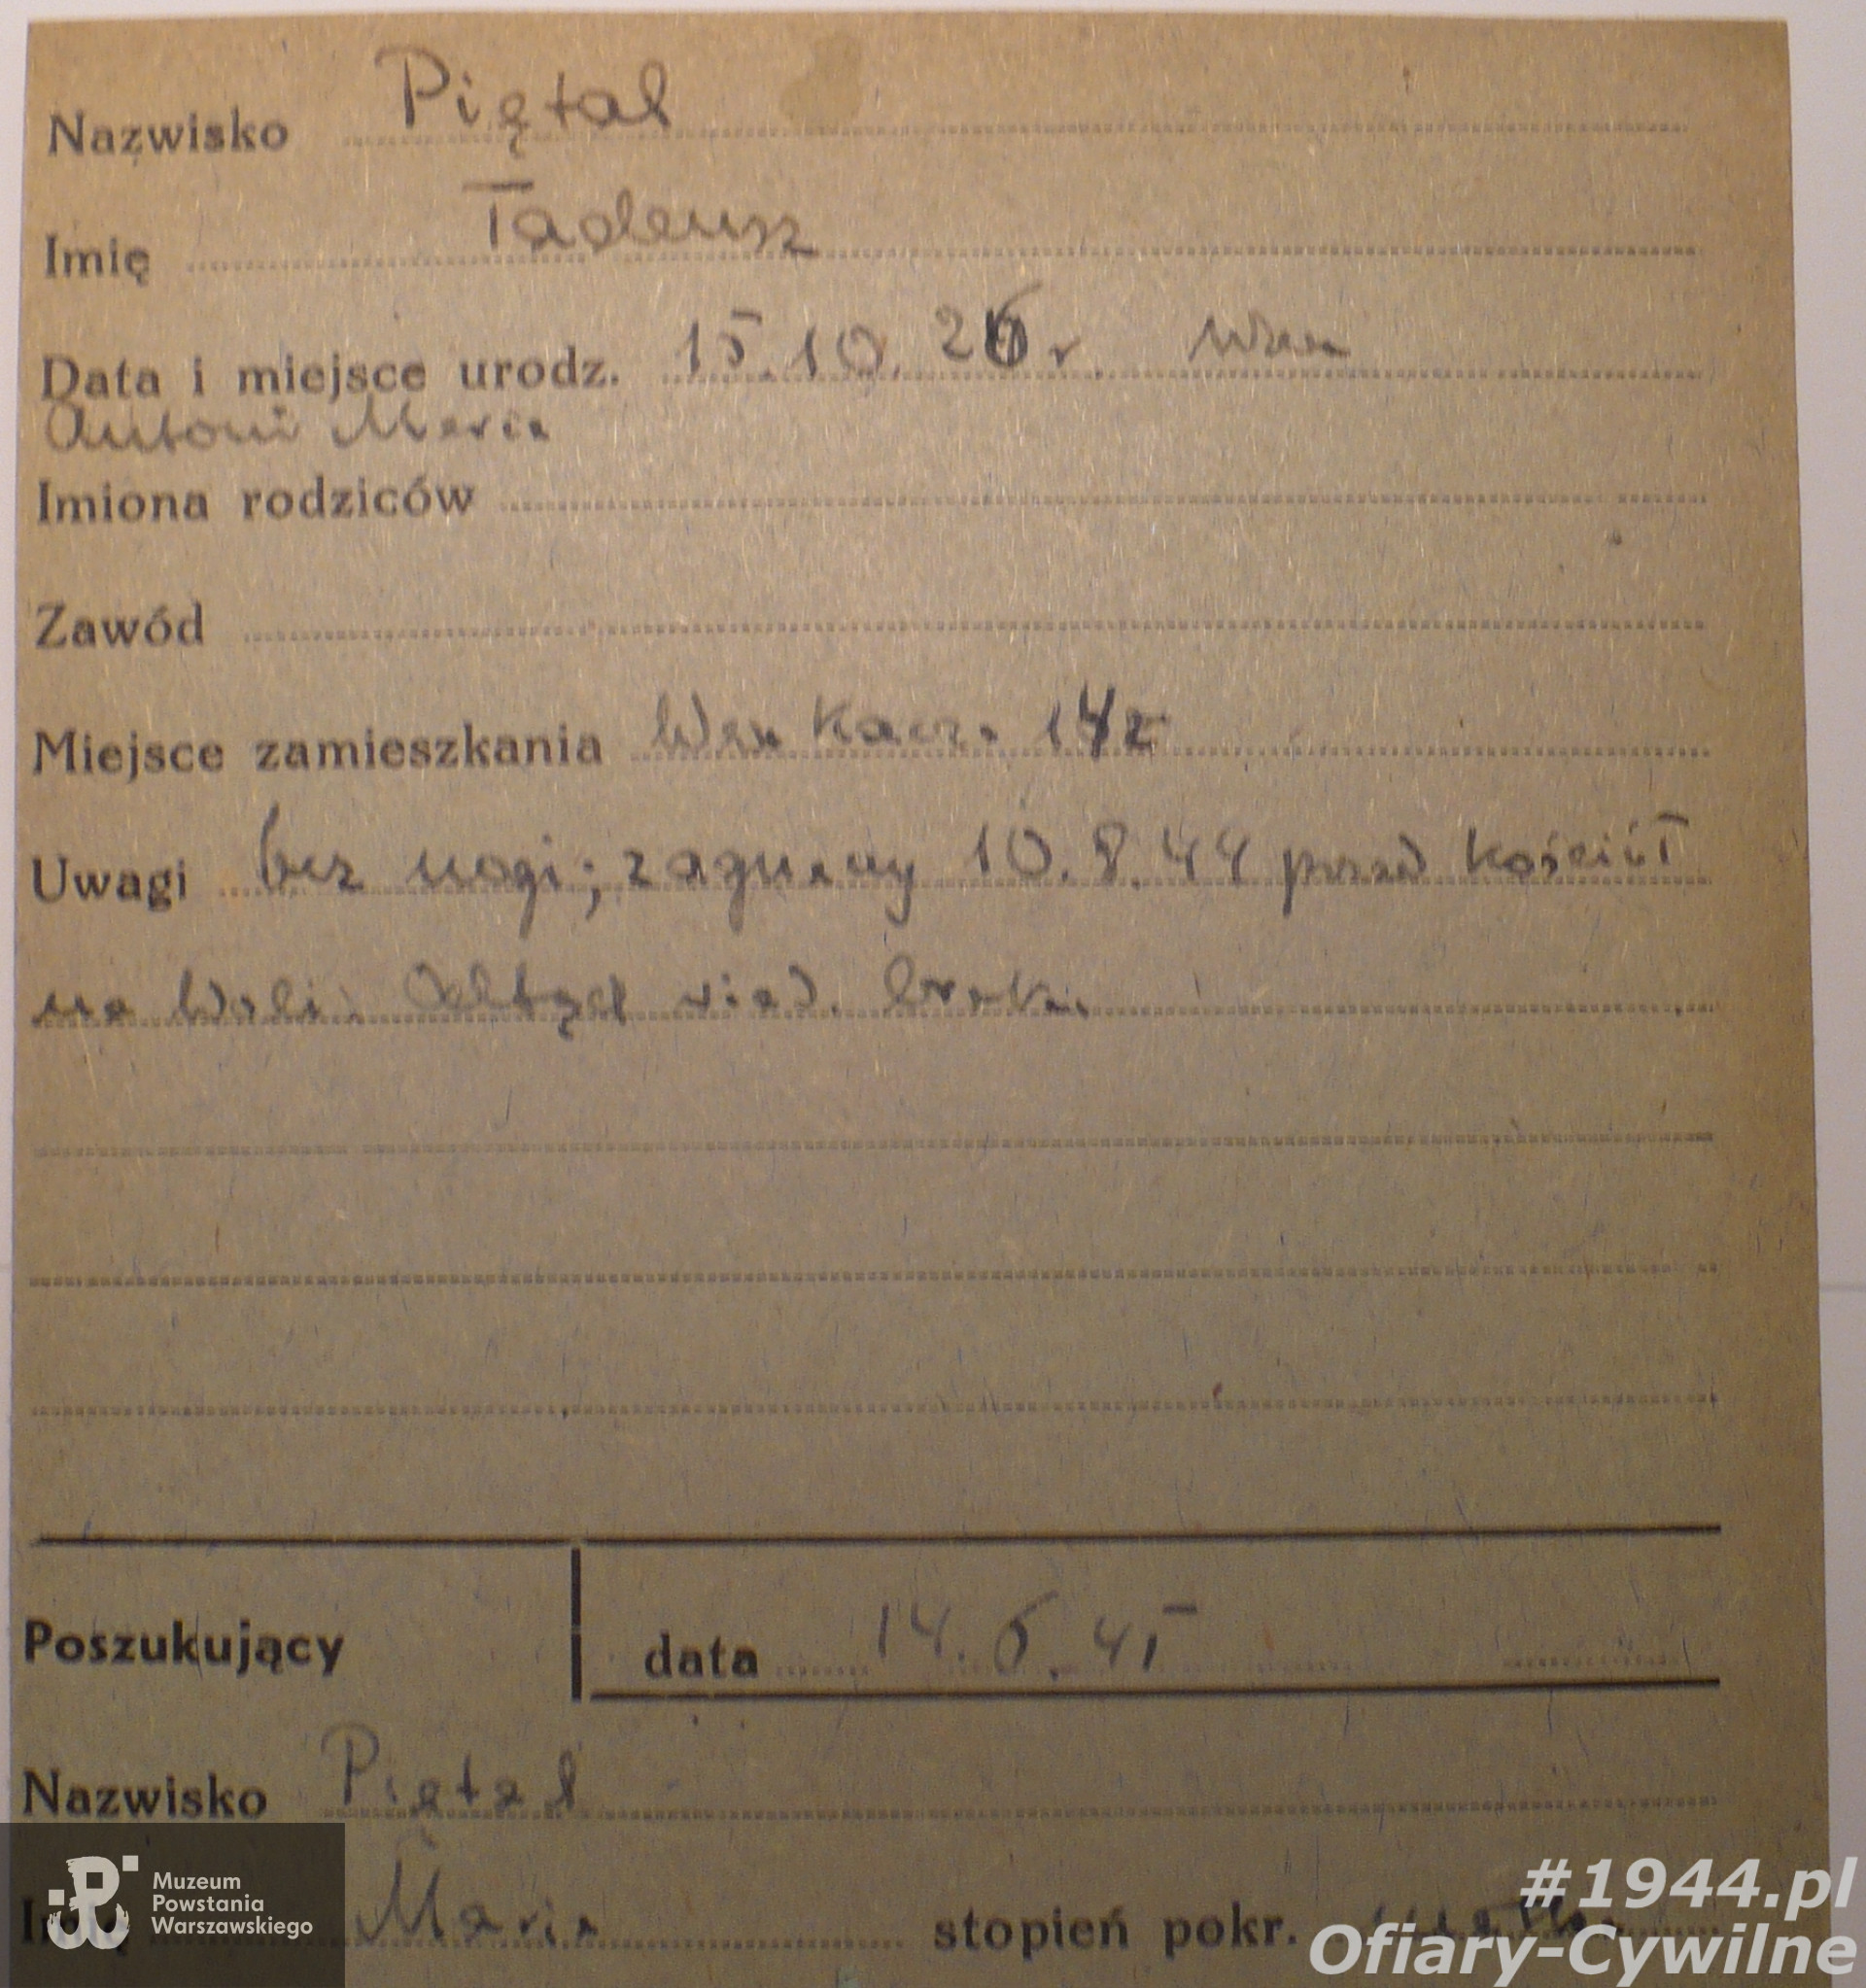 Nazwisko Piętal
Imię Tadeusz
Data i miejsce urodz. 15.10.26 r. Wwa
Antoni Maria
Imiona rodziców
Zawód
Miejsce zamieszkania Wwa Kacz. 14
Uwagi bez nogi; zaginiony 10.8.44 przed kościół
na Woli. Odtąd wiad. brak.
Poszukujący data 14.6.45
Nazwisko Piętal
Imię Maria stopień pokr. matka
Muzeum
Powstania
Warszawskiego
#1944.pl
Ofiary-Cywilne